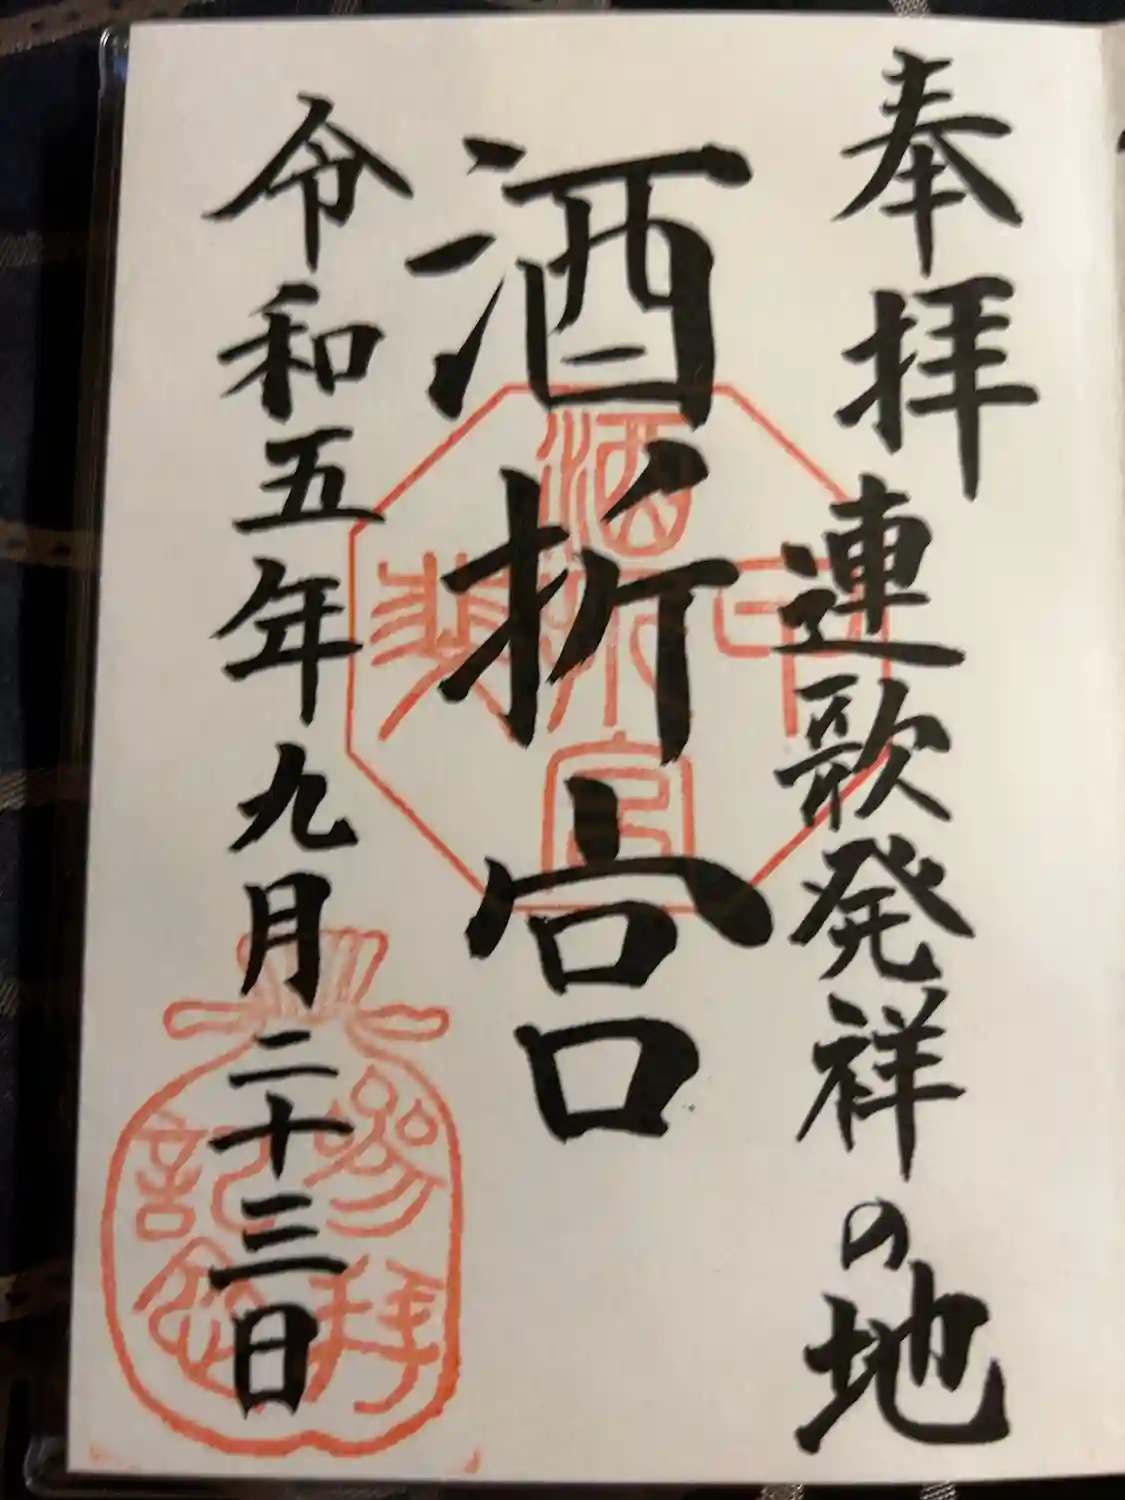 奉拝
連歌発祥の地
酒折宮
令和五年九月二十三日
酒折宮
参拝
記念